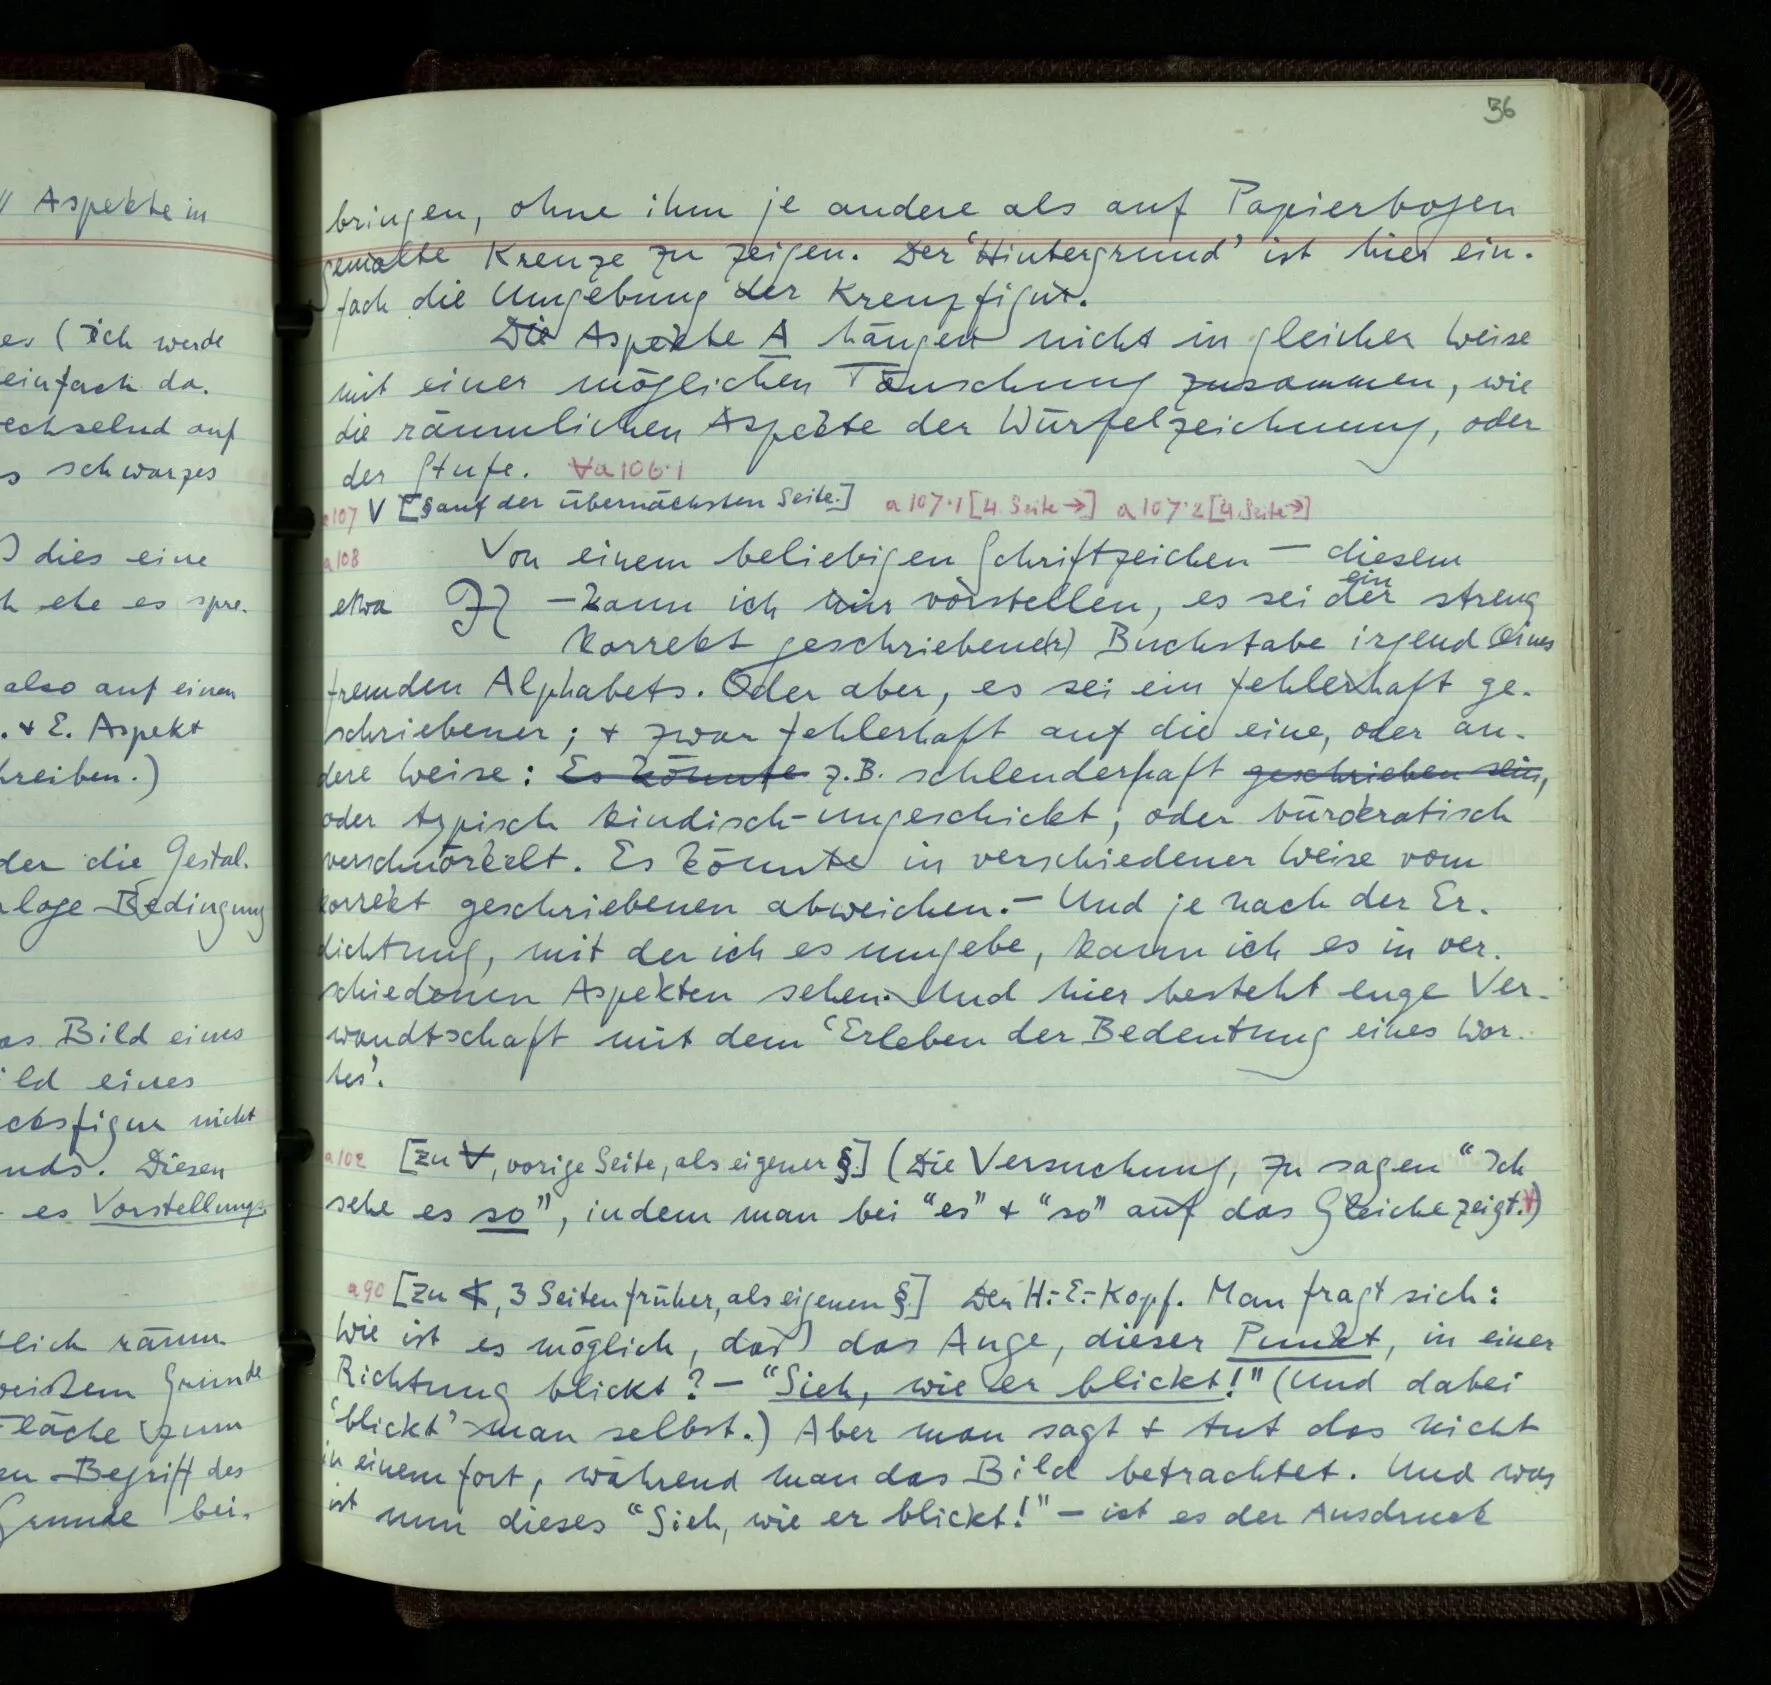 36
// Aspekte in
es (ich werde
einfach da.
echselnd auf
s schwarzes
dies eine
h ehe es spre-
also auf einen
. + E. Aspekt
hreiben.)
der die Gestal-
aloge Bedingung
as Bild eines
ild eines
ecksfigur nicht
nds. Diesen
- es Vorstellungs-
tlich räum-
weißem Grunde
Fläche zum
en Begriff des
Grunde bei-
bringen, ohne ihm je andere als auf Papierbogen
gemalte Kreuze zu zeigen. Der ‘Hintergrund’ ist hier ein-
fach die Umgebung der Kreuzfigur.
Die Aspekte A hängen nicht in gleicher Weise
mit einer möglichen Täuschung zusammen, wie
die räumlichen Aspekte der Würfelzeichnung, oder
der Stufe. ∀a106·1
a107 V [§ auf der übernächsten Seite.] a107·1 [4. Seite→] a107·2 [4. Seite→]
a108 Von einem beliebigen Schriftzeichen — diesem
etwa — kann ich mir vorstellen, es sei der ein streng
korrekt geschriebene(r) Buchstabe irgend eines
fremden Alphabets. Oder aber, es sei ein fehlerhaft ge-
schriebener; + zwar fehlerhaft auf die eine, oder an-
dere Weise: Es könnte z.B. schleuderhaft geschrieben sein,
oder typisch kindisch-ungeschickt, oder bürokratisch
verschnörkelt. Es könnte in verschiedener Weise vom
korrekt geschriebenen abweichen. – Und je nach der Er-
dichtung, mit der ich es umgebe, kann ich es in ver-
schiedenen Aspekten sehen. Und hier besteht enge Ver-
wandtschaft mit dem ‘Erleben der Bedeutung eines Wor-
tes’.
a102 [zu ∀, vorige Seite, als eigener §.] (Die Versuchung, zu sagen “Ich
sehe es so”, indem man bei “es” + “so” auf das Gleiche zeigt.)
a90 [zu, 3 Seiten früher, als eigenen §.] Der H.-E.-Kopf. Man fragt sich:
Wie ist es möglich, daß das Auge, dieser Punkt, in einer
Richtung blickt? – “Sieh, wie er blickt!” (Und dabei
‘blickt’ man selbst.) Aber man sagt + tut das nicht
in einem fort, während man das Bild betrachtet. Und was
ist nun dieses “Sieh, wie er blickt!” – ist es der Ausdruck